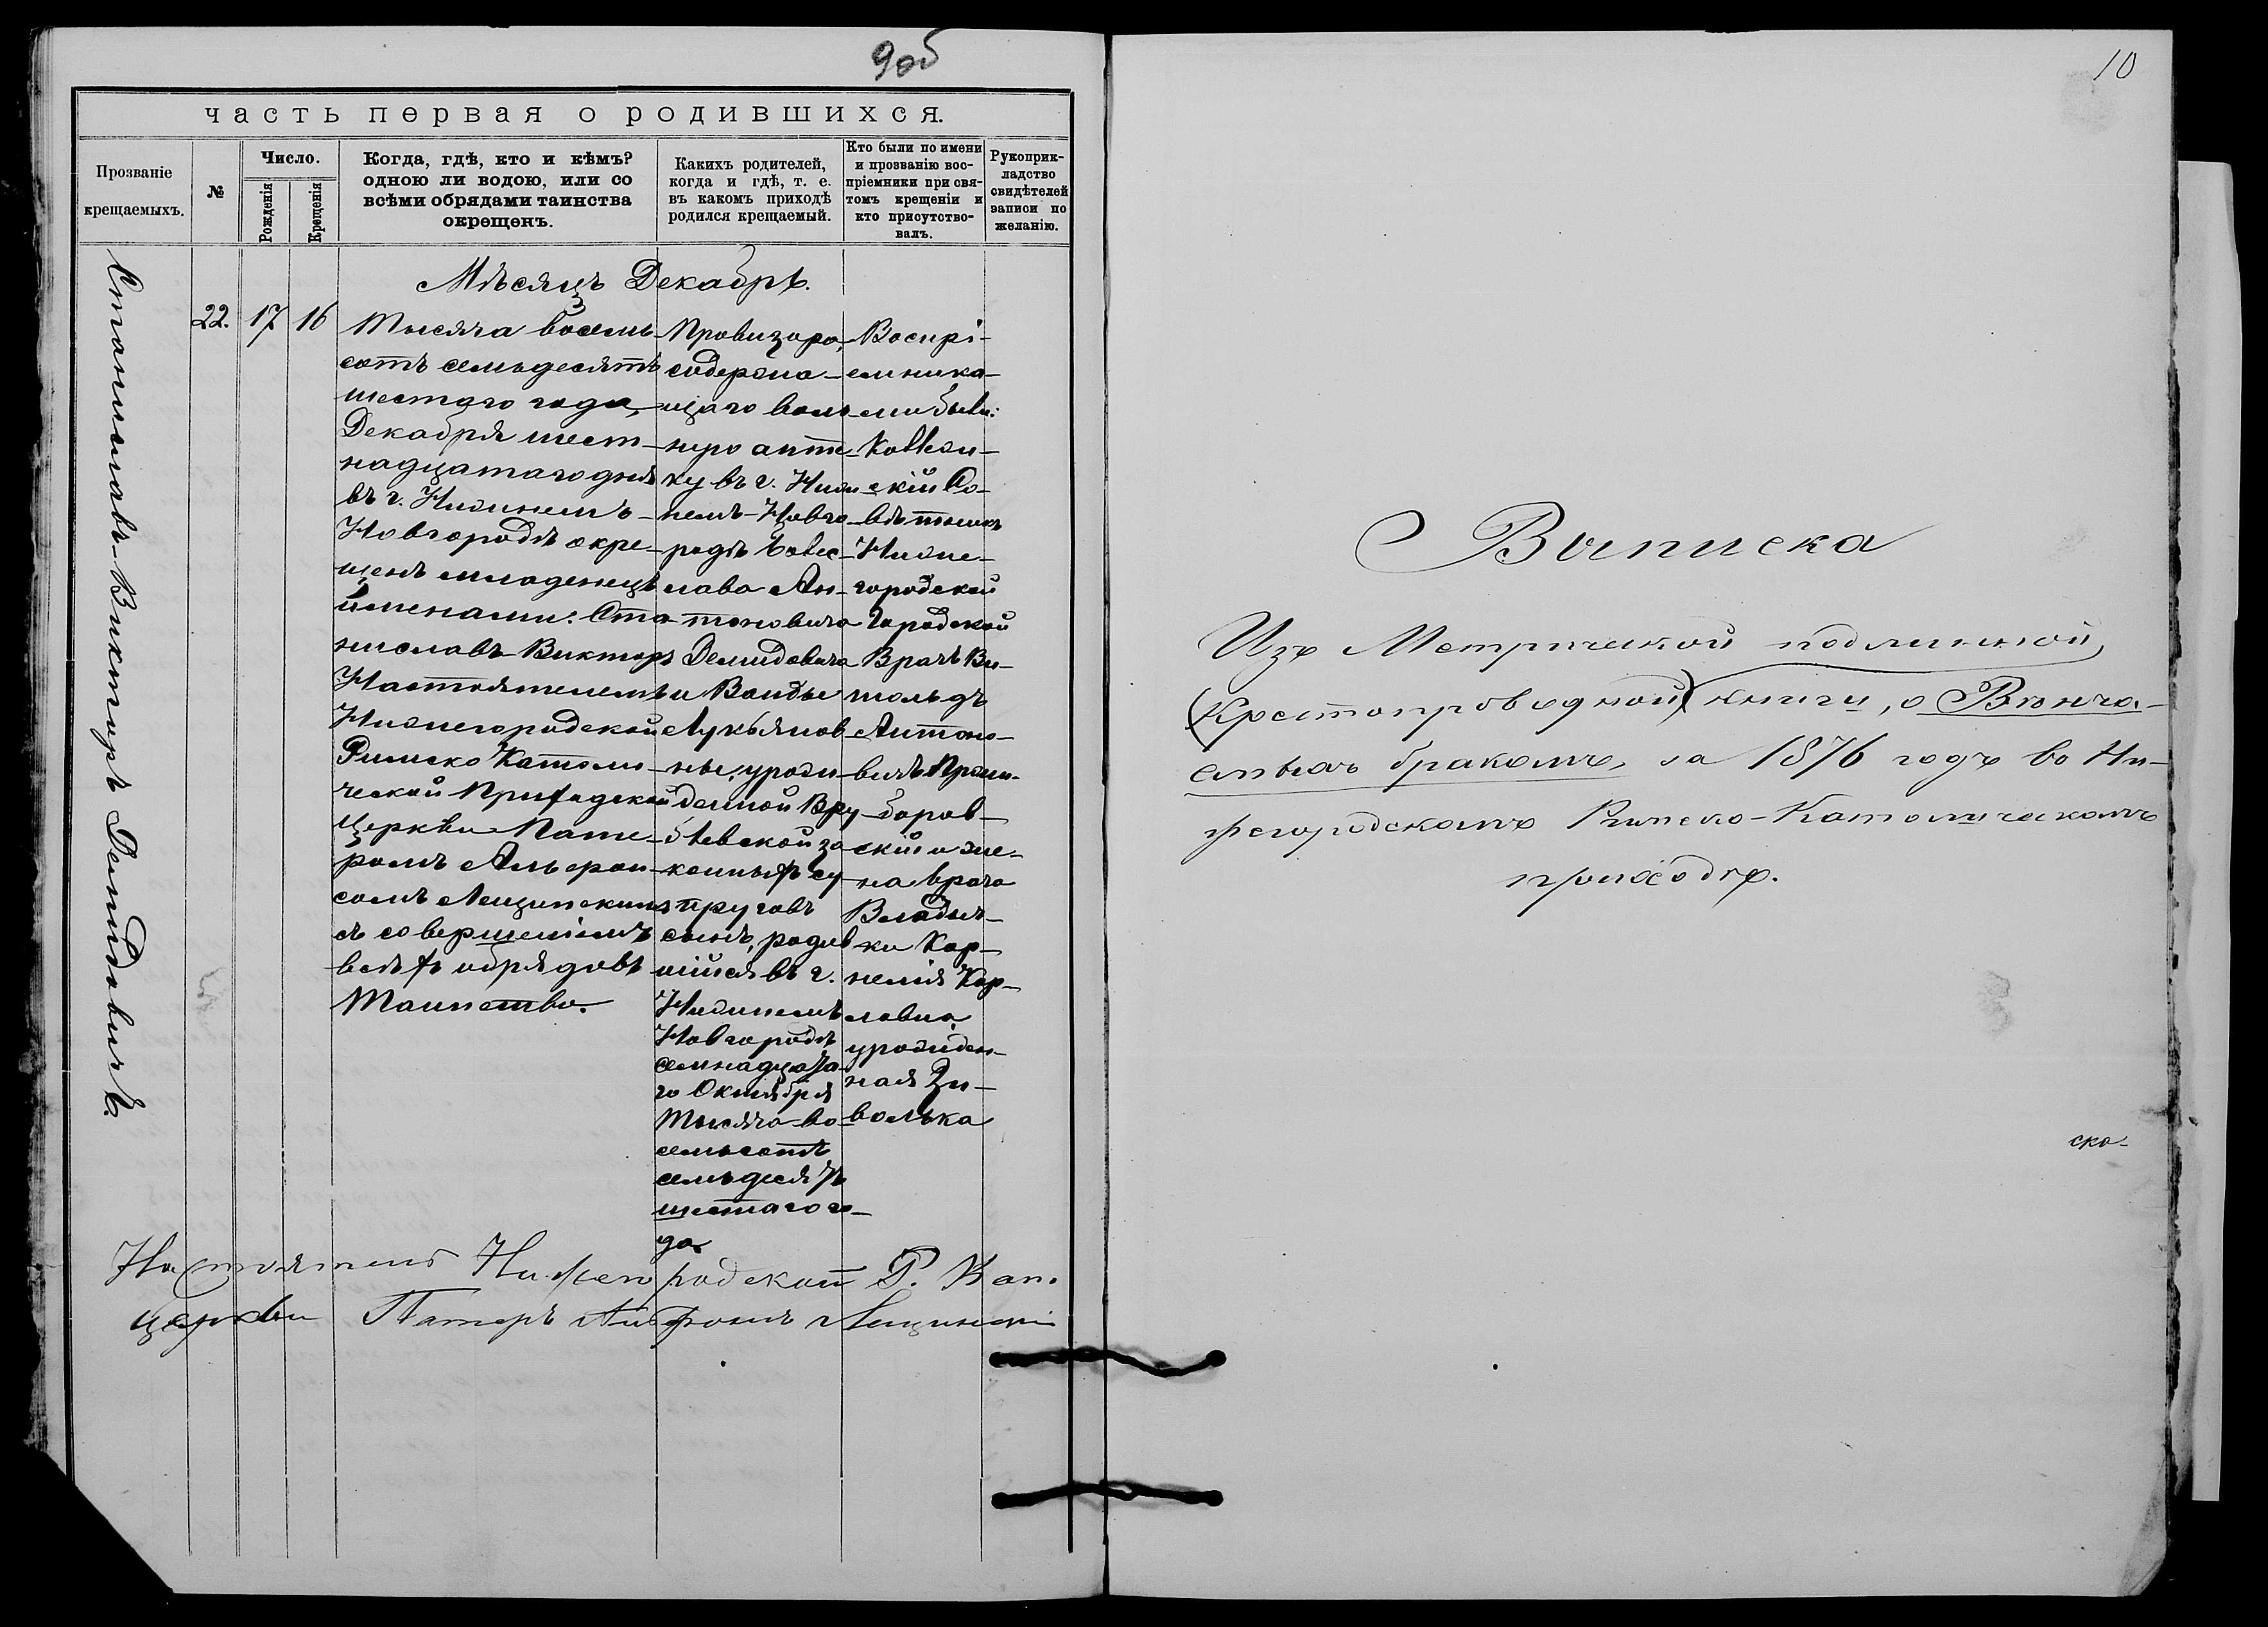 9об
часть первая о родившихся.
Прозваніе крещаемыхъ.
№
Число.
Рожденія
Крещенія
Когда, гдѣ, кто и кѣмъ?
одною ли водою, или со
всѣми обрядами таинства
окрещенъ.
Какихъ родителей,
когда и гдѣ, т. е.
въ какомъ приходѣ
родился крещаемый.
Кто были по имени
и прозванію вос-
пріемники при свя-
томъ крещеніи и
кто присутство-
валъ.
Рукоприк-
ладство
свидѣтелей
записи по
желанію.
Станиславъ-Викторъ Демидовичъ.
Мѣсяцъ Декабрь.
22. 17 16
Тысяча восемь-
сотъ семьдесятъ
шестаго года,
Декабря шест-
надцатаго дня
въ г. Нижнемъ-
Новгородѣ окре-
щенъ младенецъ
именами: Ста-
ниславъ-Викторъ
Настоятелемъ
Нижегородской
Римско Католи-
ческой Приходской
Церкви Пате-
ромъ Альфон-
сомъ Лещинскимъ
съ совершеніемъ
всѣхъ обрядовъ
Таинства.
Провизора,
содержа-
щаго воль-
ную апте-
ку въ г. Ниж-
немъ-Новго-
родѣ Болес-
лава Ан-
тоновича
Демидовича
и Ванды
Лукьянов-
ны, урож-
денной Вру-
блевской за-
конныхъ су-
пруговъ
сынъ, родив-
шійся въ г.
Нижнемъ
Новгородѣ
семнадцата-
го Октября
тысяча-во-
семьсотъ
семьдесятъ
шестаго го-
да
Воспрі-
емника-
ми были:
Коллеж-
скій Со-
вѣтникъ
Ниже-
городскій
Городской
Врачъ Ви-
тольдъ
Антоно-
вичъ
боров-
скій и же-
на врача
Владис-
ка Кор-
нелія Кар-
ловна,
урожден-
ная Зи-
волька
Настоятель Нижегородской Р. Кат.
церкви Патеръ Альфонсъ Лещинскій
10
Выписка
Изъ Метрической подлинной
(Крестопроводной) книги, о Вѣнча-
емыхъ бракомъ, за 1876 годъ во Ни-
жегородскомъ Римско-Католическомъ
приходѣ.
ска-